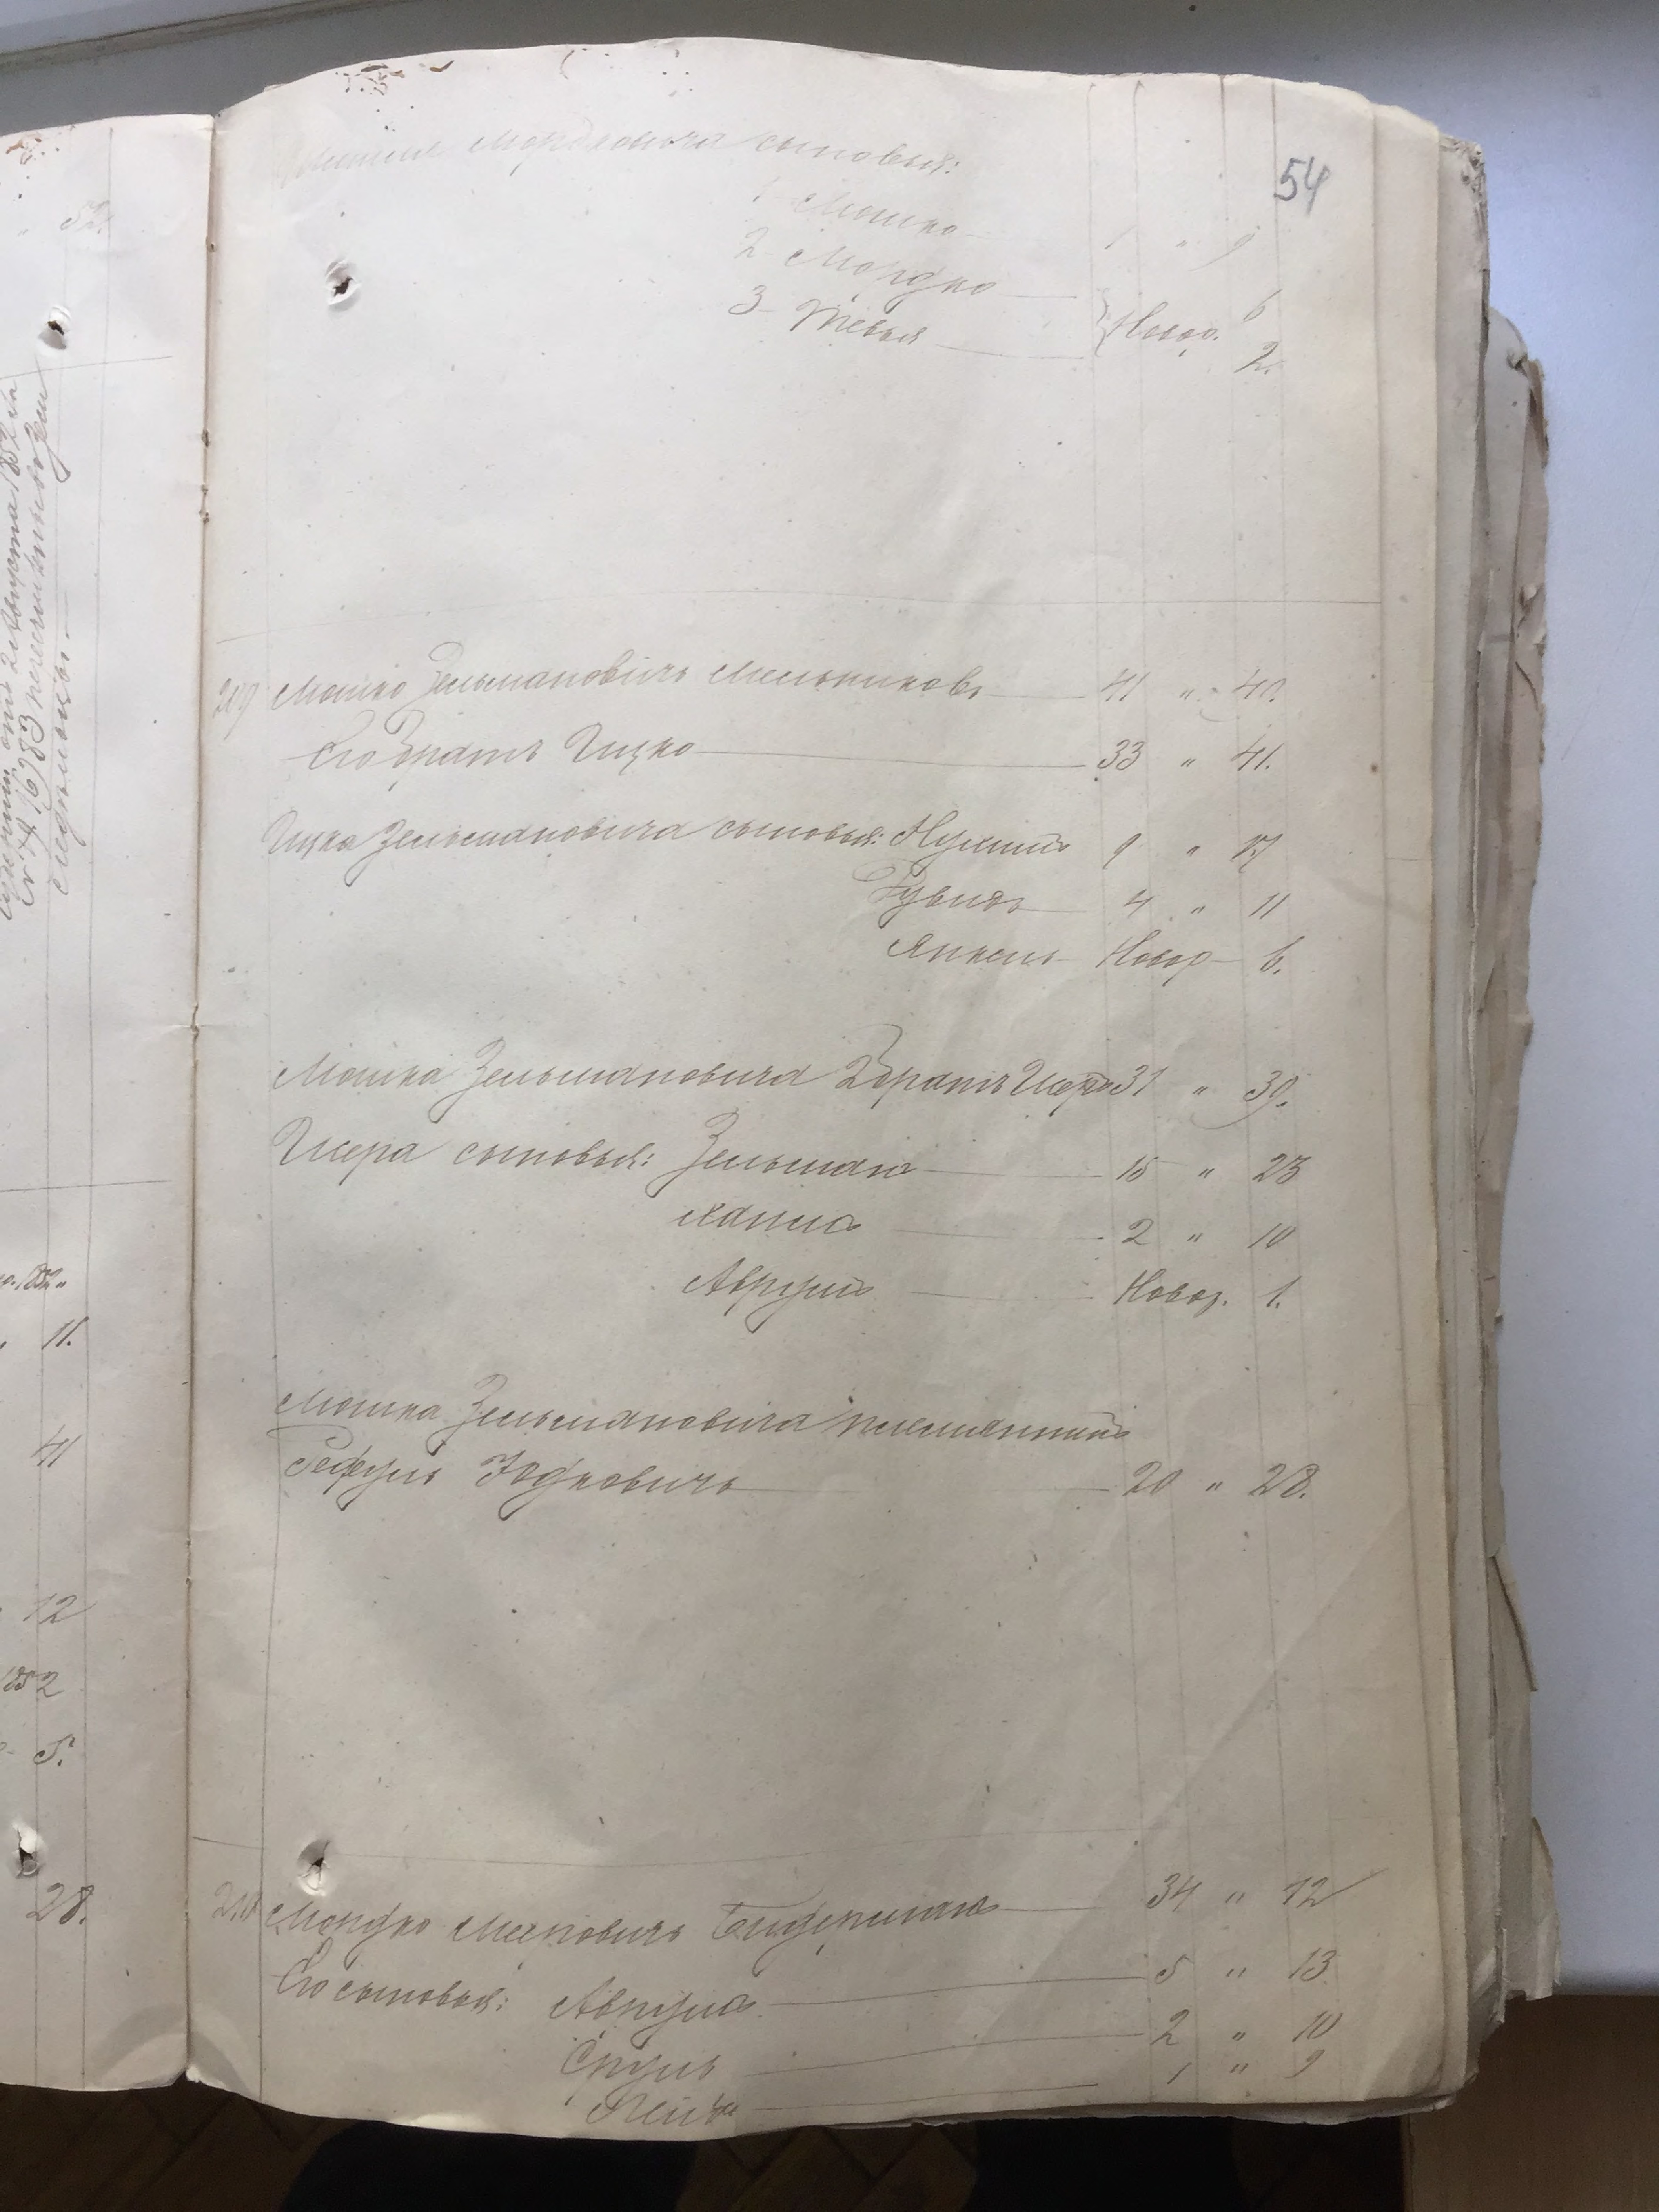 54
Мордковича сыновья:
1 Мошко 1 " 9
2 Мордко 6
3 Тевья Новор. 2.
209 Мошко Зельмановичъ Мельниковъ 41 " 49.
Его братъ Ицко 33 " 41.
Ицка Зельмановича сыновья: Нухимъ 9 " 17
Рувинъ 4 " 11
Янкель Новор 6.
Мошка Зельмановича 2 братъ Исеръ 31 " 39.
Исера сыновья: Зельманъ 15 " 23
Хаимъ 2 " 10
Аврумъ Новор. 1.
Мошка Зельмановича племянникъ
Рефуль Іодковичъ 20 " 28.
210 Мордко Мееровичъ 34 " 42
Его сыновья: Аврумъ 5 " 13
Сруль 2 " 10
1 " 9
52.
2 Августа 1852 за
№ 16783
11.
41
12
1852
5.
28.